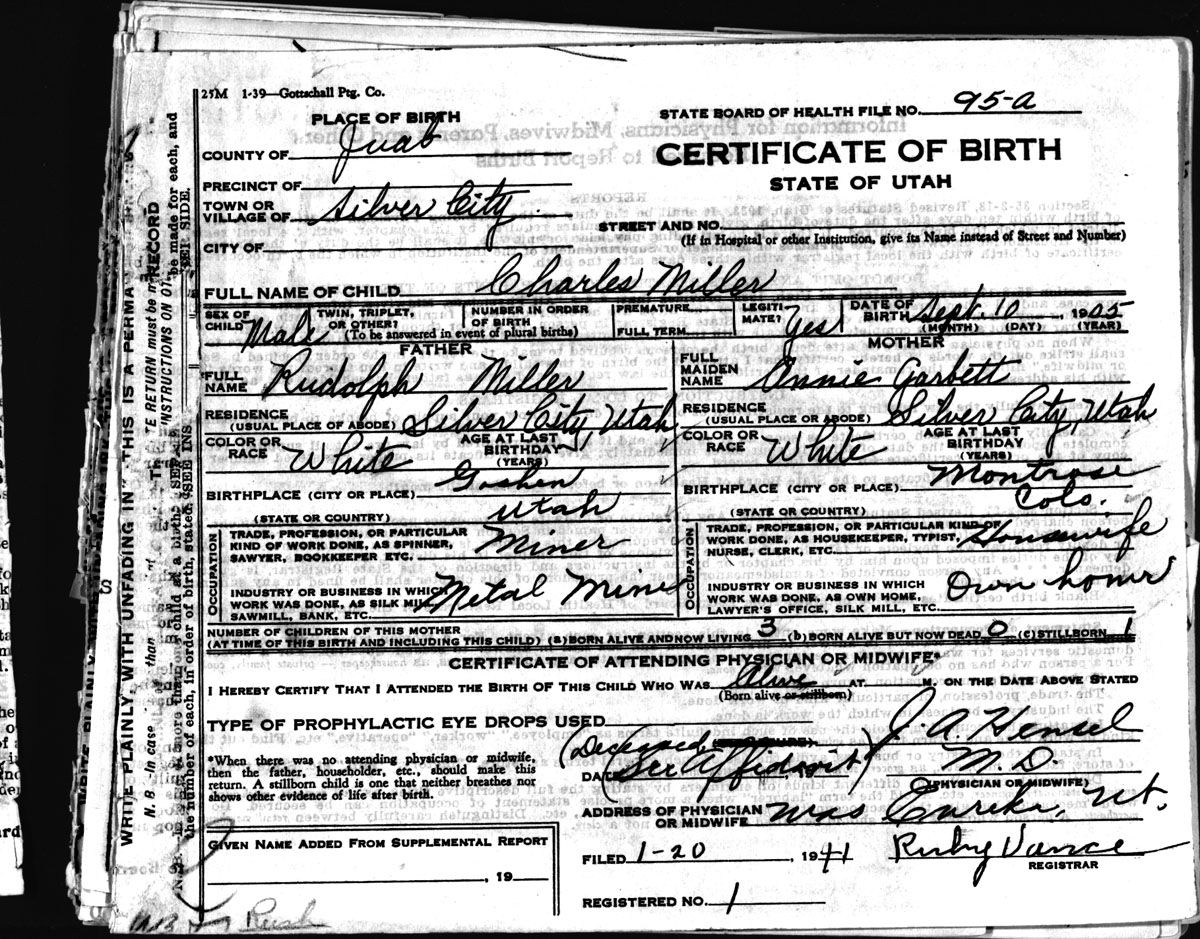 25M 1-39—Gottschall Ptg. Co.
STATE BOARD OF HEALTH FILE NO. 95-a
PLACE OF BIRTH
COUNTY OF Juab
CERTIFICATE OF BIRTH
STATE OF UTAH
PRECINCT OF
TOWN OR
VILLAGE OF Silver City
STREET AND NO.
(If in Hospital or other Institution, give its Name instead of Street and Number)
CITY OF
FULL NAME OF CHILD Charles Miller
SEX OF CHILD Male
TWIN, TRIPLET, OR OTHER?
NUMBER IN ORDER OF BIRTH
(To be answered in event of plural births)
PREMATURE
FULL TERM
LEGITIMATE? Yes
DATE OF BIRTH Sept. 10, 1905
(MONTH) (DAY) (YEAR)
FATHER
FULL NAME Rudolph Miller
RESIDENCE
(USUAL PLACE OF ABODE) Silver City, Utah
COLOR OR RACE White
AGE AT LAST BIRTHDAY
(YEARS)
BIRTHPLACE (CITY OR PLACE) Goshen
(STATE OR COUNTRY) Utah
OCCUPATION
TRADE, PROFESSION, OR PARTICULAR
KIND OF WORK DONE, AS SPINNER,
SAWYER, BOOKKEEPER ETC. Miner
INDUSTRY OR BUSINESS IN WHICH
WORK WAS DONE, AS SILK MILL
SAWMILL, BANK, ETC. Metal Mine
MOTHER
FULL MAIDEN NAME Annie Garbett
RESIDENCE
(USUAL PLACE OR ABODE) Silver City, Utah
COLOR OR RACE White
AGE AT LAST BIRTHDAY
(YEARS)
BIRTHPLACE (CITY OR PLACE) Montrose
(STATE OR COUNTRY) Colo.
OCCUPATION
TRADE, PROFESSION, OR PARTICULAR KIND OF
WORK DONE, AS HOUSEKEEPER, TYPIST,
NURSE, CLERK, ETC. Housewife
INDUSTRY OR BUSINESS IN WHICH
WORK WAS DONE, AS OWN HOME,
LAWYER'S OFFICE, SILK MILL, ETC. Own home
NUMBER OF CHILDREN OF THIS MOTHER
(AT TIME OF THIS BIRTH AND INCLUDING THIS CHILD) (a) BORN ALIVE AND NOW LIVING 3 (b) BORN ALIVE BUT NOW DEAD 0 (c) STILLBORN 1
CERTIFICATE OF ATTENDING PHYSICIAN OR MIDWIFE*
I HEREBY CERTIFY THAT I ATTENDED THE BIRTH OF THIS CHILD WHO WAS Alive AT M. ON THE DATE ABOVE STATED
(Born alive or stillborn)
TYPE OF PROPHYLACTIC EYE DROPS USED
*When there was no attending physician or midwife,
then the father, householder, etc., should make this
return. A stillborn child is one that neither breathes nor
shows other evidence of life after birth.
(Deceased J. A. Hensel
DATE (See Affidavit) M.D.
(PHYSICIAN OR MIDWIFE)
ADDRESS OF PHYSICIAN
OR MIDWIFE was Eureka, Ut.
GIVEN NAME ADDED FROM SUPPLEMENTAL REPORT
, 19
FILED 1-20, 1941 Ruby Vance
REGISTRAR
REGISTERED NO. 1
Rush
WRITE PLAINLY, WITH UNFADING IN
THIS IS A PERMA
RECORD